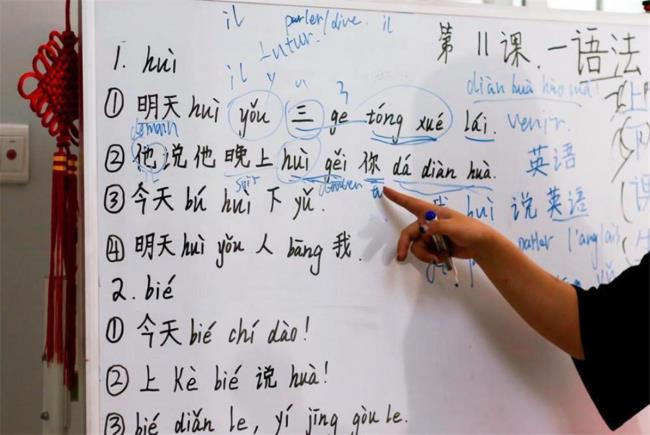 il parler/dire. il
futur.
第 11 课. 一语法
1. huì
il y
diàn huà hào mǎ!
① 明天 huì yǒu 三 ge tóng xué lái. venir.
demain
② 他说他晚上 huì gěi 你 dá diàn huà. 英语
soir tu
③ 今天 bú huì 下 yǔ. huì 说英语
parler l'anglais
④ 明天 huì yǒu 人 bāng 我.
2. bié
① 今天 bié chí dào!
② 上 Kè bié 说 huà!
③ bié diǎn le, yí jīng gòu le.